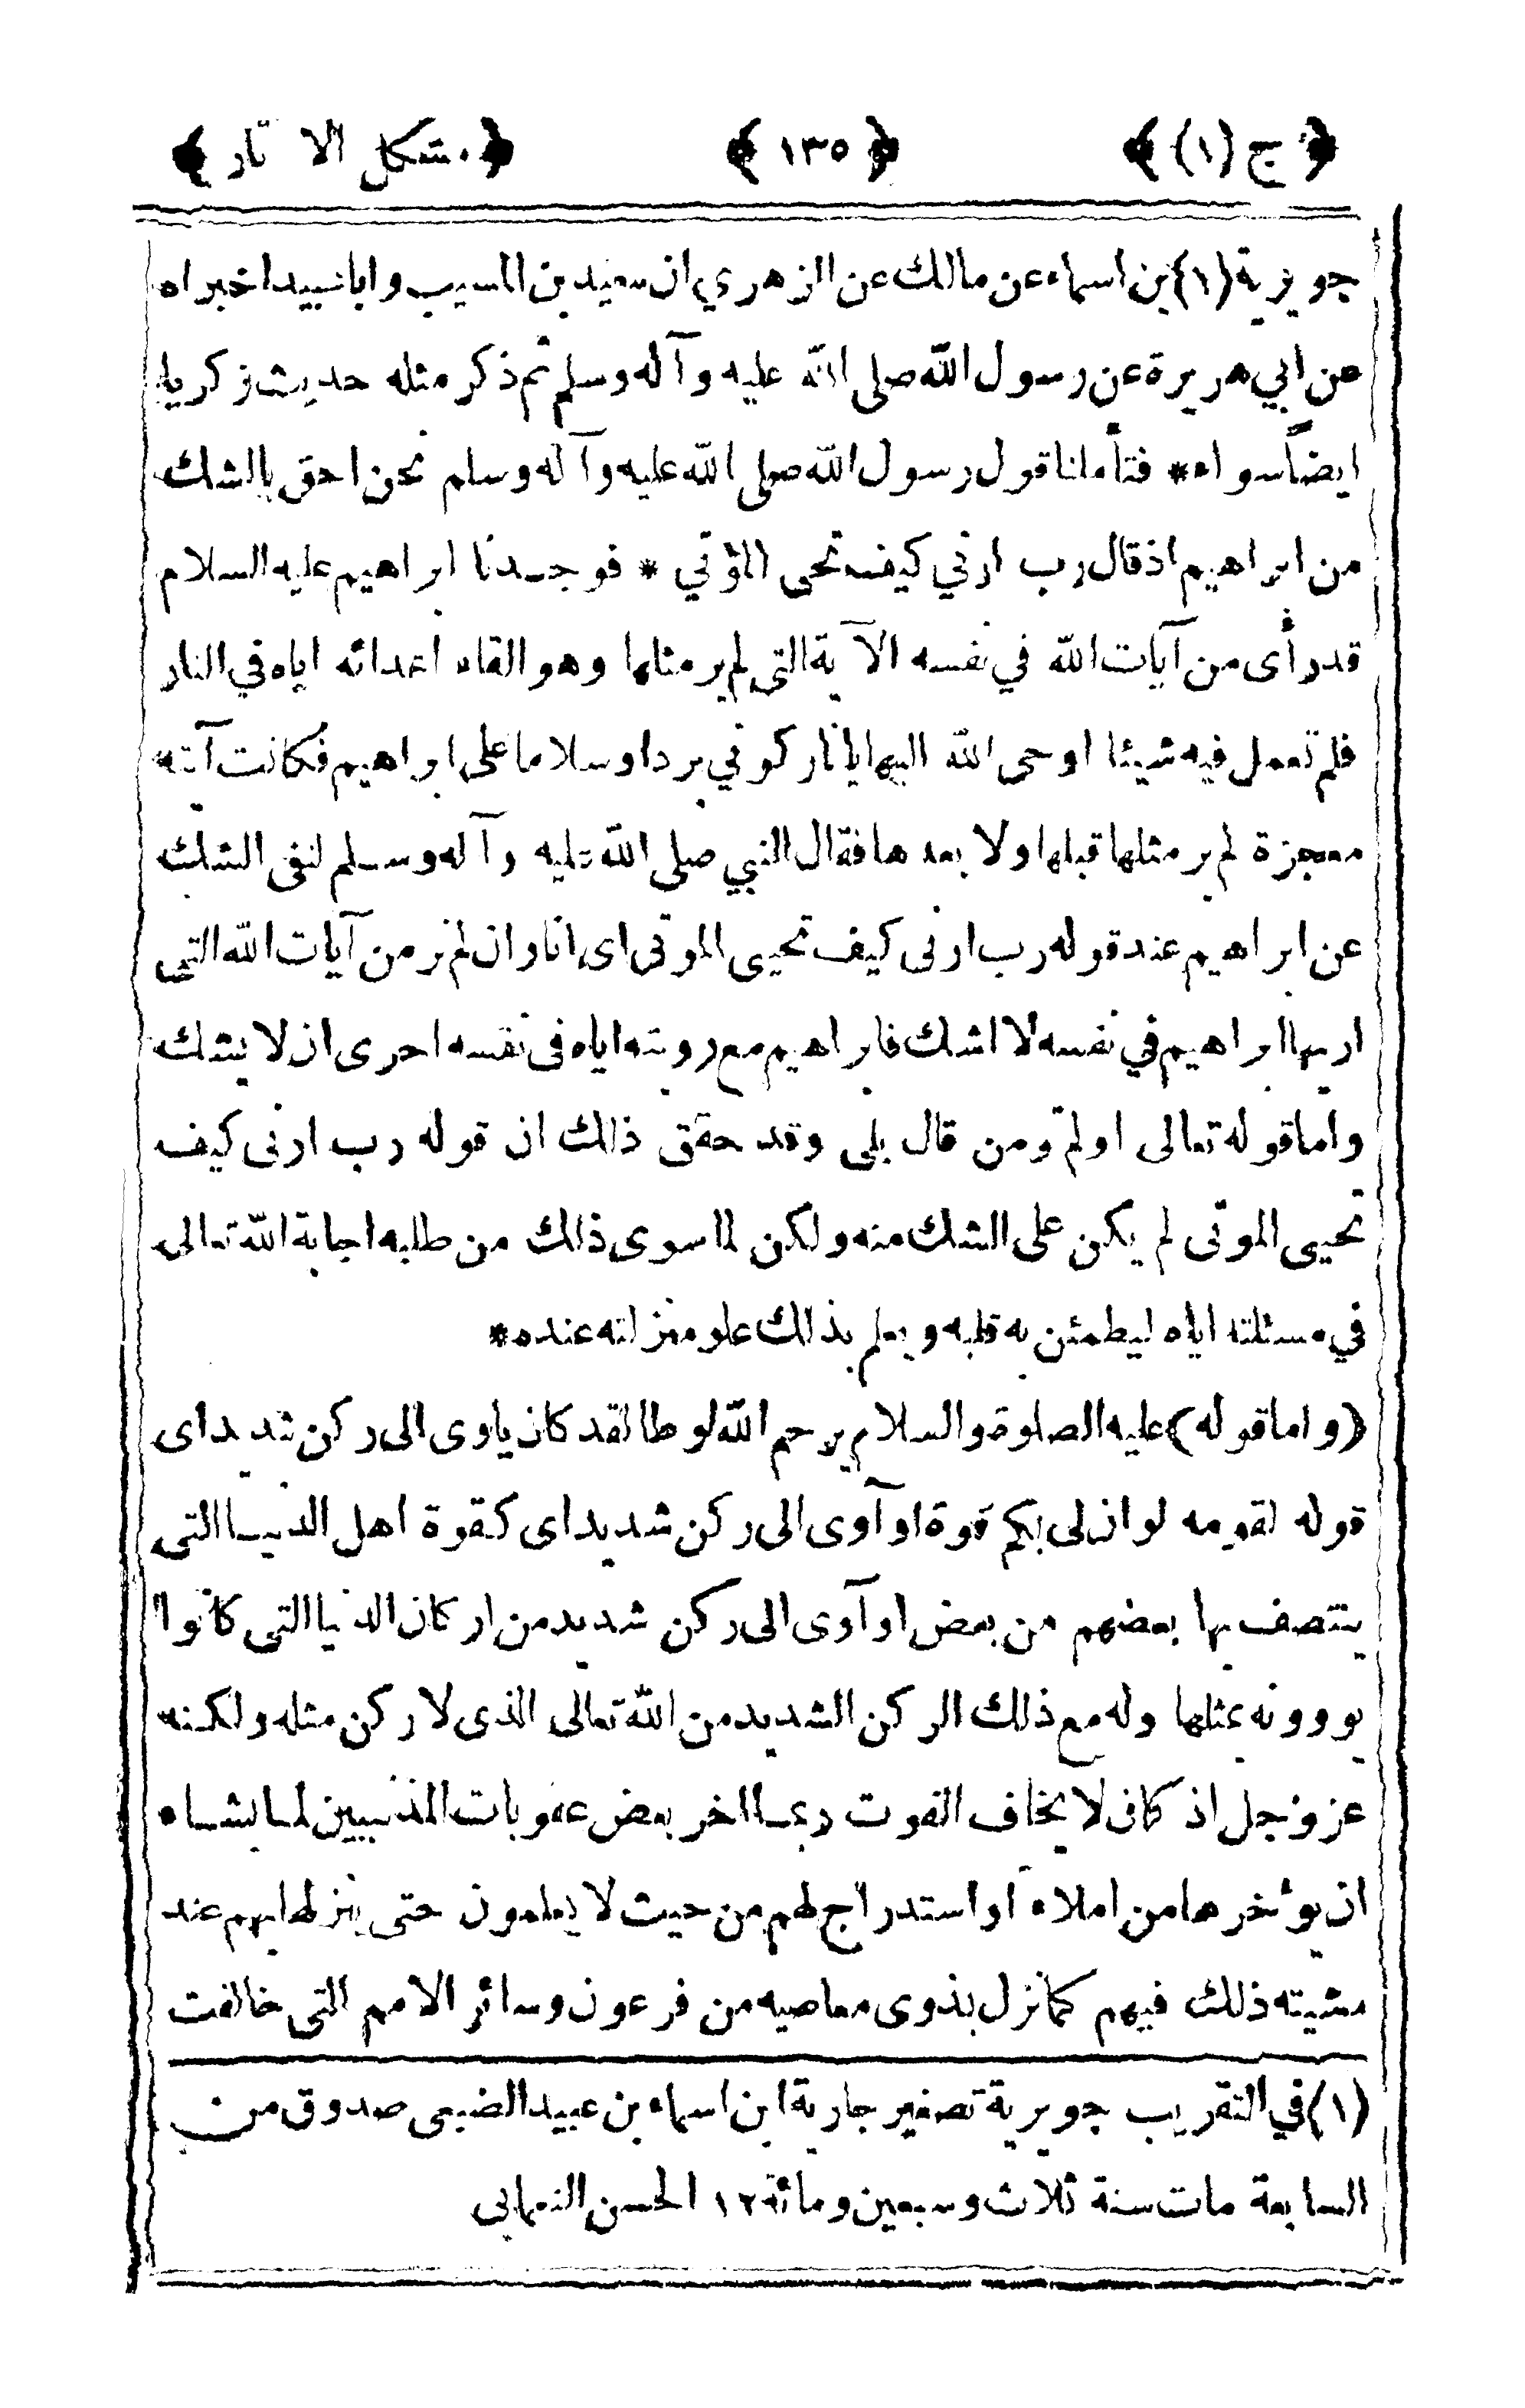 ﴿ ج (١) ﴾ ﴿ ١٣٥ ﴾ ﴿ مشكل الآثار ﴾
جويرية (١) بن اسماء عن مالك عن الزهري ان سعيد بن المسيب وابا عبيد اخبراه
عن ابي هريرة عن رسول الله صلى الله عليه وآله وسلم ثم ذكر مثله حديث زكريا
ايضاً سواء * فتأملنا قول رسول الله صلى الله عليه وآله وسلم نحن احق بالشك
من ابراهيم اذ قال رب ارني كيف تحى المؤتي * فوجدنا ابراهيم عليه السلام
قد رأى من آيات الله في نفسه الآية التي لم ير مثلها وهو القاء اعدائه اياه في النار
فلم تعمل فيه شيئا اوحى الله اليها يا نار كوني بردا وسلاما على ابراهيم فكانت آيته
معجزة لم ير مثلها قبلها ولا بعدها فقال النبي صلى الله عليه وآله وسلم لنفى الشك
عن ابراهيم عند قوله رب ارنى كيف تحيى الموتى اى انا وان لم نر من آيات الله التى
اريها ابراهيم في نفسه لا اشك فابراهيم مع رويته اياه فى نفسه احرى ان لا يشك
واما قوله تعالى اولم تومن قال بلى وقد حقق ذلك ان قوله رب ارنى كيف
تحيى الموتى لم يكن على الشك منه ولكن لما سوى ذلك من طلبه اجابة الله تعالى
في مسئلته اياه ليطمئن به قلبه ويعلم بذلك علو منزلته عنده *
﴿ واما قوله ﴾ عليه الصلوة والسلام يرحم الله لوطا لقد كان ياوى الى ركن شديد اى
قوله لقومه لو ان لى بكم قوة او آوى الى ركن شديد اى كقوة اهل الدنيا التى
ينتصف بها بعضهم من بعض او آوى الى ركن شديد من اركان الدنيا التى كانوا
يوونه بمثلها وله مع ذلك الركن الشديد من الله تعالى الذى لا ركن مثله ولكنه
عز وجل اذ كانى لا يخاف الفوت ربما اخر بعض عقوبات المذنبيين لما يشاء
ان يوٴخرها من املاء او استدراج لهم من حيث لا يعلمون حتى ينزلها بهم عند
مشيته ذلك فيهم كما نزل بذوى معاصيه من فرعون وسائر الامم التى خالفت
(١) في التقريب جويرية تصغير جارية ابن اسماء بن عبيد الضبعى صدوق من
السابعة مات سنة ثلاث وسبعين ومائة ١٢ الحسن النعمانى